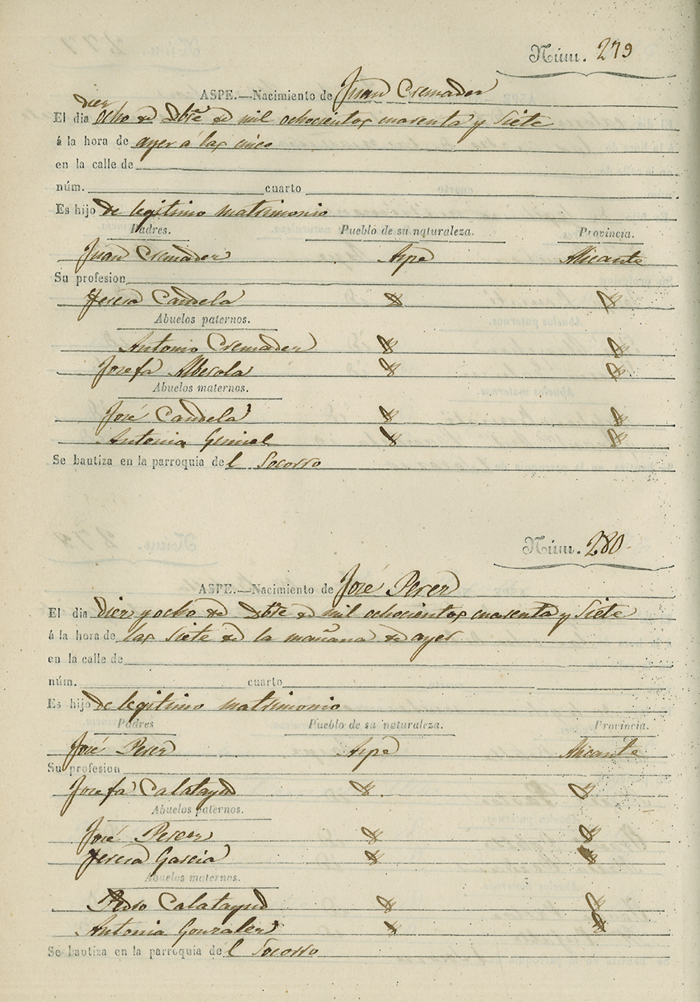 Núm. 279
ASPE.—Nacimiento de Juan Cremades
El dia diez ocho de Dbre de mil ochocientos cuarenta y siete
á la hora de ayer á las cinco
en la calle de
núm. cuarto
Es hijo de legitimo matrimonio
Padres. Pueblo de su naturaleza. Provincia.
Juan Cremades Aspe Alicante
Su profesion
Teresa Candela
Abuelos paternos.
Antonio Cremades
Josefa Alberola
Abuelos maternos.
José Candela
Antonia
Se bautiza en la parroquia del Socorro
Núm. 280
ASPE.—Nacimiento de José Perez
El dia diez y ocho de Dbre de mil ochocientos cuarenta y siete
á la hora de las siete de la mañana de ayer
en la calle de
núm. cuarto
Es hijo de legitimo matrimonio
Padres Pueblo de su naturaleza. Provincia.
José Perez Aspe Alicante
Su profesion
Josefa Calatayud
Abuelos paternos.
José Perez
Teresa Garcia
Abuelos maternos.
Pedro Calatayud
Antonia Gonzalez
Se bautiza en la parroquia del Socorro